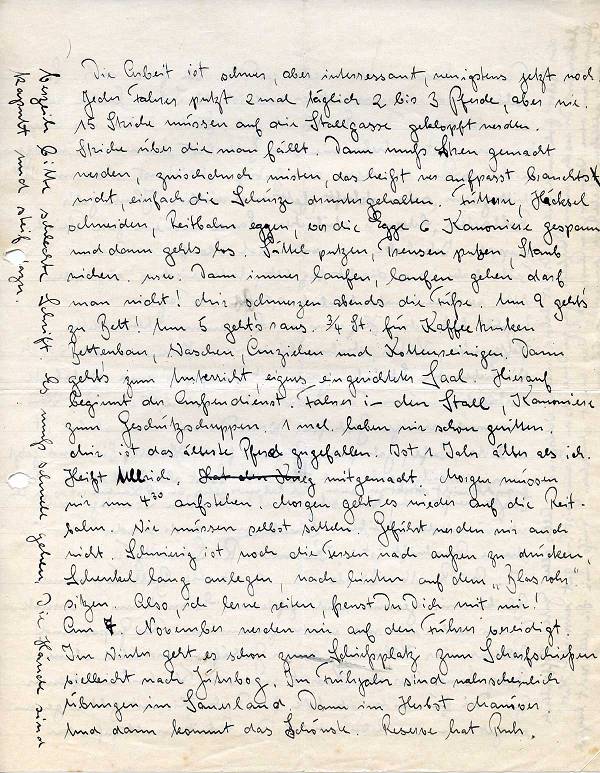 Die Arbeit ist schwer, aber interessant, wenigstens jetzt noch.
Jeder Fahrer putzt 2 mal täglich 2 bis 3 Pferde, aber wie.
15 Striche müssen auf die Stallgasse geklopft werden.
Striche über die man fällt. Dann muß Streu gemacht
werden, zwischendurch misten, das heißt wer aufpasst brauchts
nicht, einfach die Schürze druntergehalten. Füttern, Häcksel
schneiden, Reitbahn eggen, vor die Egge 6 Kanoniere gespannt
und dann gehts los. Sättel putzen, Trensen putzen, Staub
wichen. usw. Dann immer laufen, laufen gehen darf
man nicht! Mir schmerzen abends die Füße. Um 9 geht's
zu Bett! Um 5 geht's raus. ¾ St. für Kaffeetrinken
Bettenbau, Waschen, Anziehen und Reinigen. Dann
gehts zum Unterricht, eigens eingerichteter Saal. Hierauf
beginnt der Außendienst. Fahrer in den Stall, Kanoniere
zum Geschützschuppen. 1 mal haben wir schon geritten.
Mir ist das älteste Pferd zugefallen. Ist 1 Jahr älter als ich.
Heißt Ullrich. Hat den Krieg mitgemacht. Morgen müssen
wir um 4³⁰ aufstehen. Morgen geht es wieder auf die Reit-
bahn. Wir müssen selbst satteln. Geführt werden wir auch
nicht. Schwierig ist noch die Fersen nach außen zu drücken,
Schenkel lang anlegen, nach hinten auf dem „Blasrohr"
sitzen. Also, ich lerne reiten, freust Du Dich mit mir!
Am 7. November werden wir auf den Führer vereidigt.
Im Winter geht es schon zum Schießplatz zum Scharfschießen
vielleicht nach Jüterbog. Im Frühjahr sind wahrscheinlich
Übungen im Sauerland. Dann im Herbst Manöver.
Und dann kommt das Schönste. Reserve hat Ruh.
Verzeih bitte schlechte Schrift. Es muß schnell gehen, die Hände sind
kaputt und steif